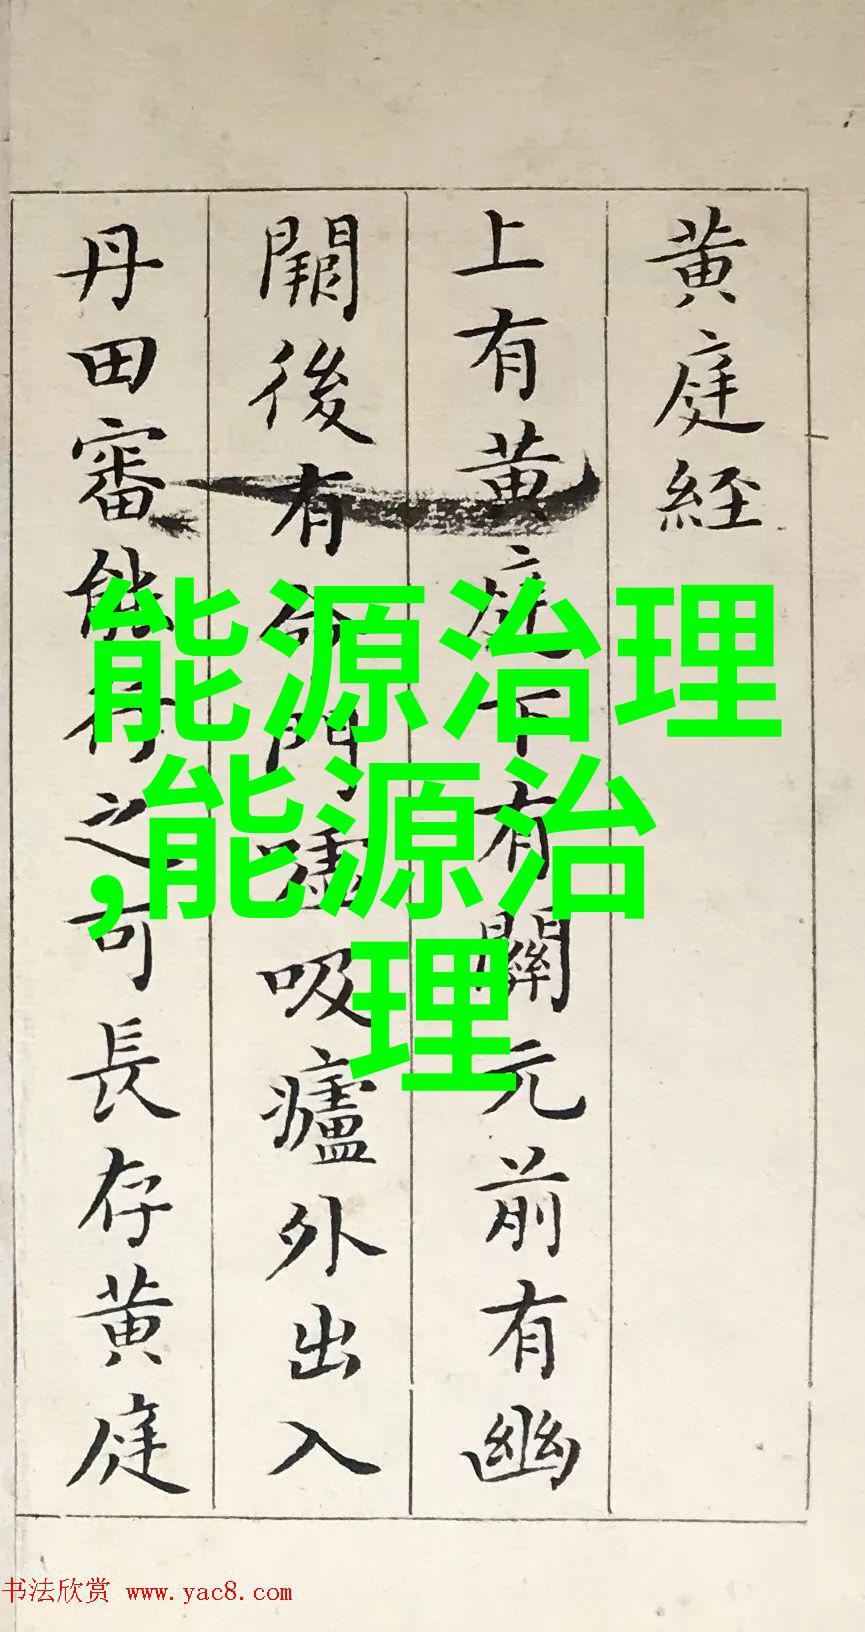 黄庭經
上有黄庭下有關元前有幽
闕後有命門噓吸廬外出入
丹田審能行之可長存黄庭
能源治理
,能源治
理
书法欣赏 www.yac8.com